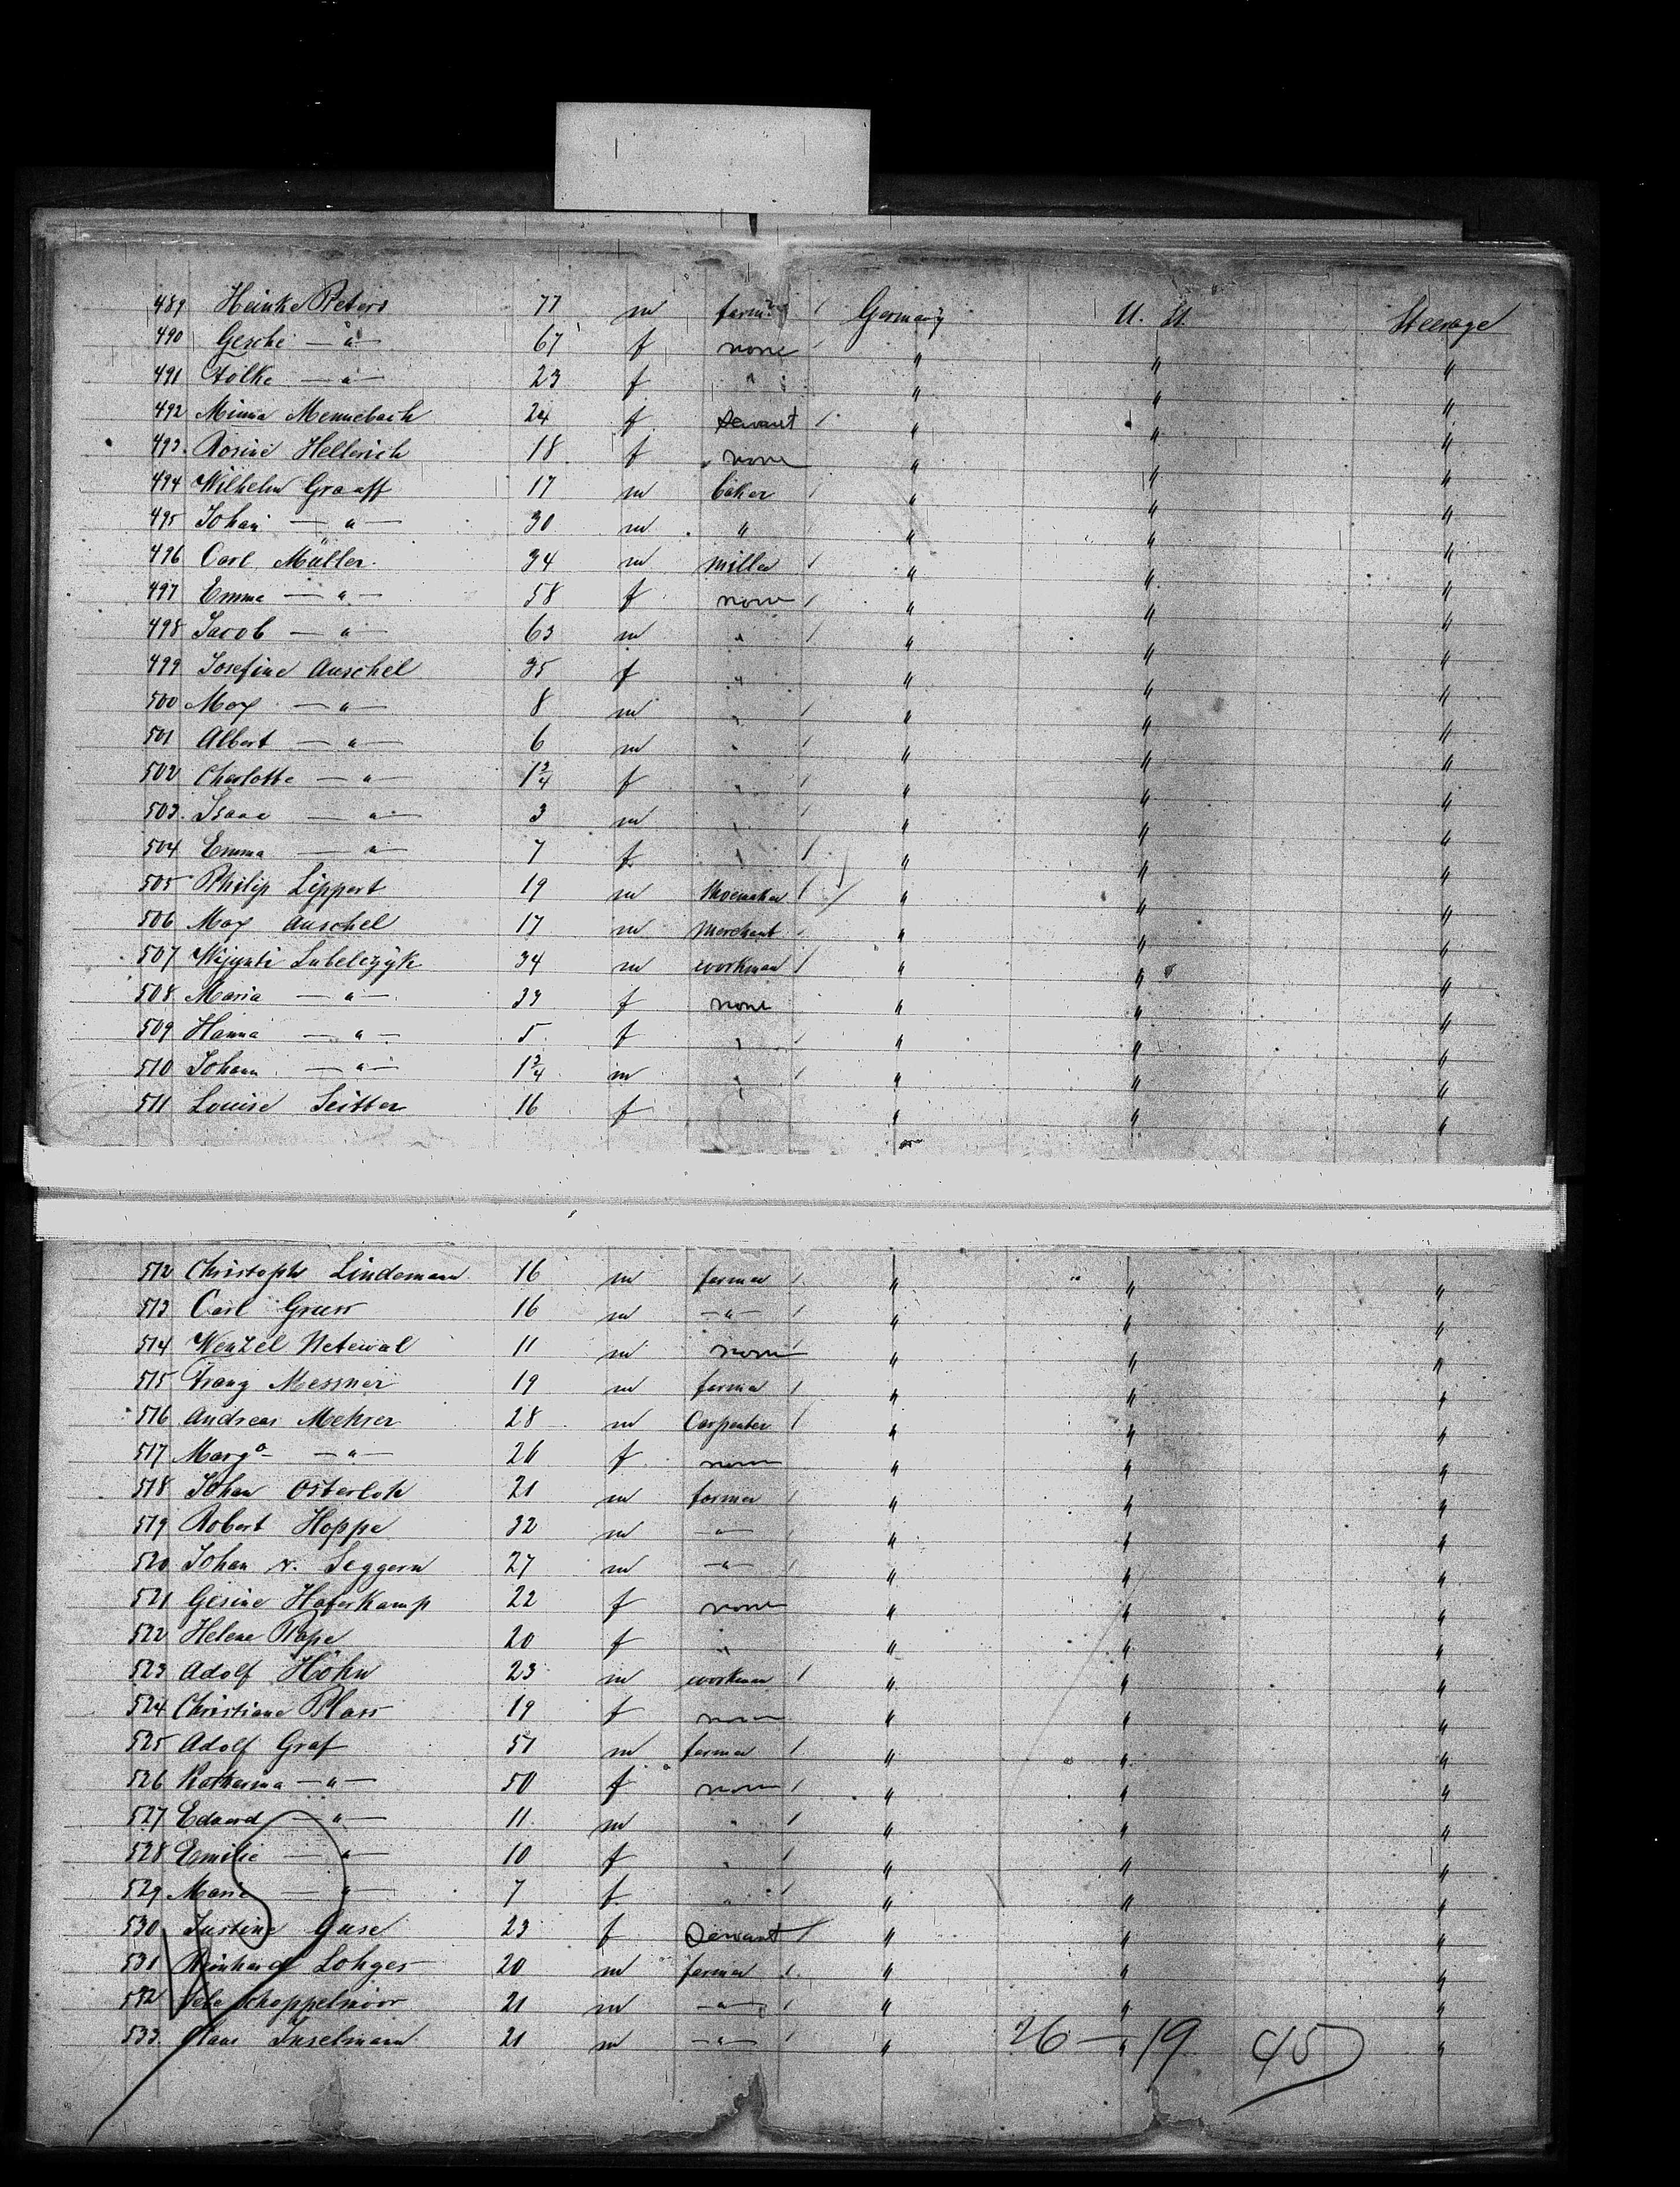 489 Heinke Peters 77 m farmer / Germany U. St. Steerage
490 Gesche — " — 67 f none / " " "
491 Fölke — " — 23 f " " " "
492 Minna Mennebach 24 f Servant / " " "
493. Rosine Hellerich 18 f none " " "
494 Wilhelm Graaff 17 m baker / " " "
495 Johan — " — 30 m " " " "
496 Carl Müller 34 m miller / " " "
497 Emma — " — 58 f none / " " "
498 Jacob — " — 63 m " / " " "
499 Josefine Auschel 35 f " " " "
500 Max — " — 8 m " / " " "
501 Albert — " — 6 m " / " " "
502 Charlotte — " — 1 3/4 f " / " " "
503. Isaac — " — 3 m " / " " "
504 Emma — " — 7 f " / " " "
505 Philip Lippert 19 m Shoemaker / " " "
506 Max Auschel 17 m Merchant / " " "
507 Lubelczyk 34 m workman / " " "
508 Maria — " — 33 f none " " "
509 Hanna — " — 5 f " / " " "
510 Johann — " — 1 3/4 m " / " " "
511 Louise Seitter 16 f " " "
512 Christoph Lindemann 16 m farmer / " " "
513 Carl Gruss 16 m — " — / " " "
514 Wenzel Netewal 11 m none / " " "
515 Franz Messner 19 m farmer / " " "
516 Andreas Mehser 28 m Carpenter / " " "
517 Marga — " — 26 f none " " "
518 Johan Osterloh 21 m farmer / " " "
519 Robert Hoppe 32 m — " — / " " "
520 Johan v. Seggern 27 m — " — / " " "
521 Gesine Haferkamp 22 f none " " "
522 Helene Pape 20 f " " " "
523 Adolf Höhn 23 m workman / " " "
524 Christiane Plass 19 f none " " "
525 Adolf Graf 51 m farmer / " " "
526 Katharina — " — 50 f none / " " "
527 Eduard — " — 11 m " / " " "
528 Emilie — " — 10 f " / " " "
529 Marie — " — 7 f " / " " "
530 Justine Guse 23 f Servant / " " "
531 Reinhard Lohges 20 m farmer / " " "
532 Schoppelnoor 21 m — " — / " " "
533. Claus Inselmann 21 m — " — / " " "
26 — 19 45